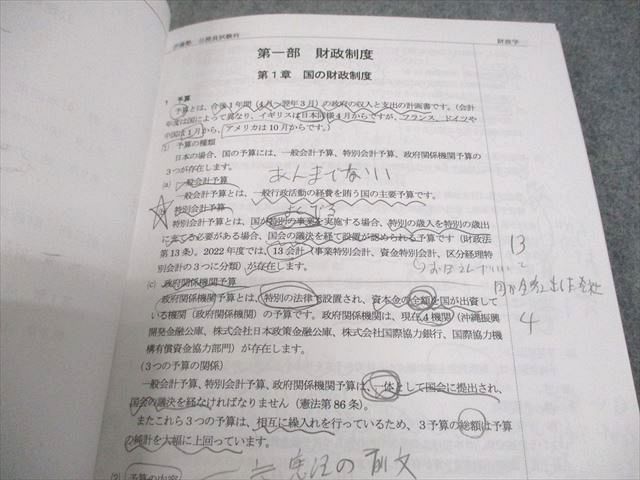 伊藤塾 公務員試験科
財政学
第一部 財政制度
第1章 国の財政制度
1 予算
予算とは、今後1年間(4月~翌年3月)の政府の収入と支出の計画書です。(会計
年度は国によって異なり、イギリスは日本同様4月からですが、フランス、ドイツや
中国は1月から、アメリカは10月からです。)
(1) 予算の種類
日本の場合、国の予算には、一般会計予算、特別会計予算、政府関係機関予算の
3つが存在します。
あんまでない
(a) 一般会計予算
一般会計予算とは、一般行政活動の経費を賄う国の主要予算です。
特別会計予算
特別会計予算とは、国が特別の事業を実施する場合、特別の歳入を特別の歳出
に充てる必要がある場合、国会の議決を経て設置が認められる予算です(財政法
第13条)。2022年度では、13会計(事業特別会計、資金特別会計、区分経理特
別会計の3つに分類)が存在します。
13
(c) 政府関係機関予算
政府関係機関予算とは、特別の法律で設置され、資本金の全額を国が出資して
いる機関(政府関係機関)の予算です。政府関係機関は、現在4機関(沖縄振興
開発金融公庫、株式会社日本政策金融公庫、株式会社国際協力銀行、国際協力機
構有償資金協力部門)が存在します。
4
(3つの予算の関係)
一般会計予算、特別会計予算、政府関係機関予算は、一体として国会に提出され、
国会の議決を経なければなりません(憲法第86条)。
またこれら3つの予算は、相互に繰入れを行っているため、3予算の総額は予算
の純計を大幅に上回っています。
(2) 予算の内容